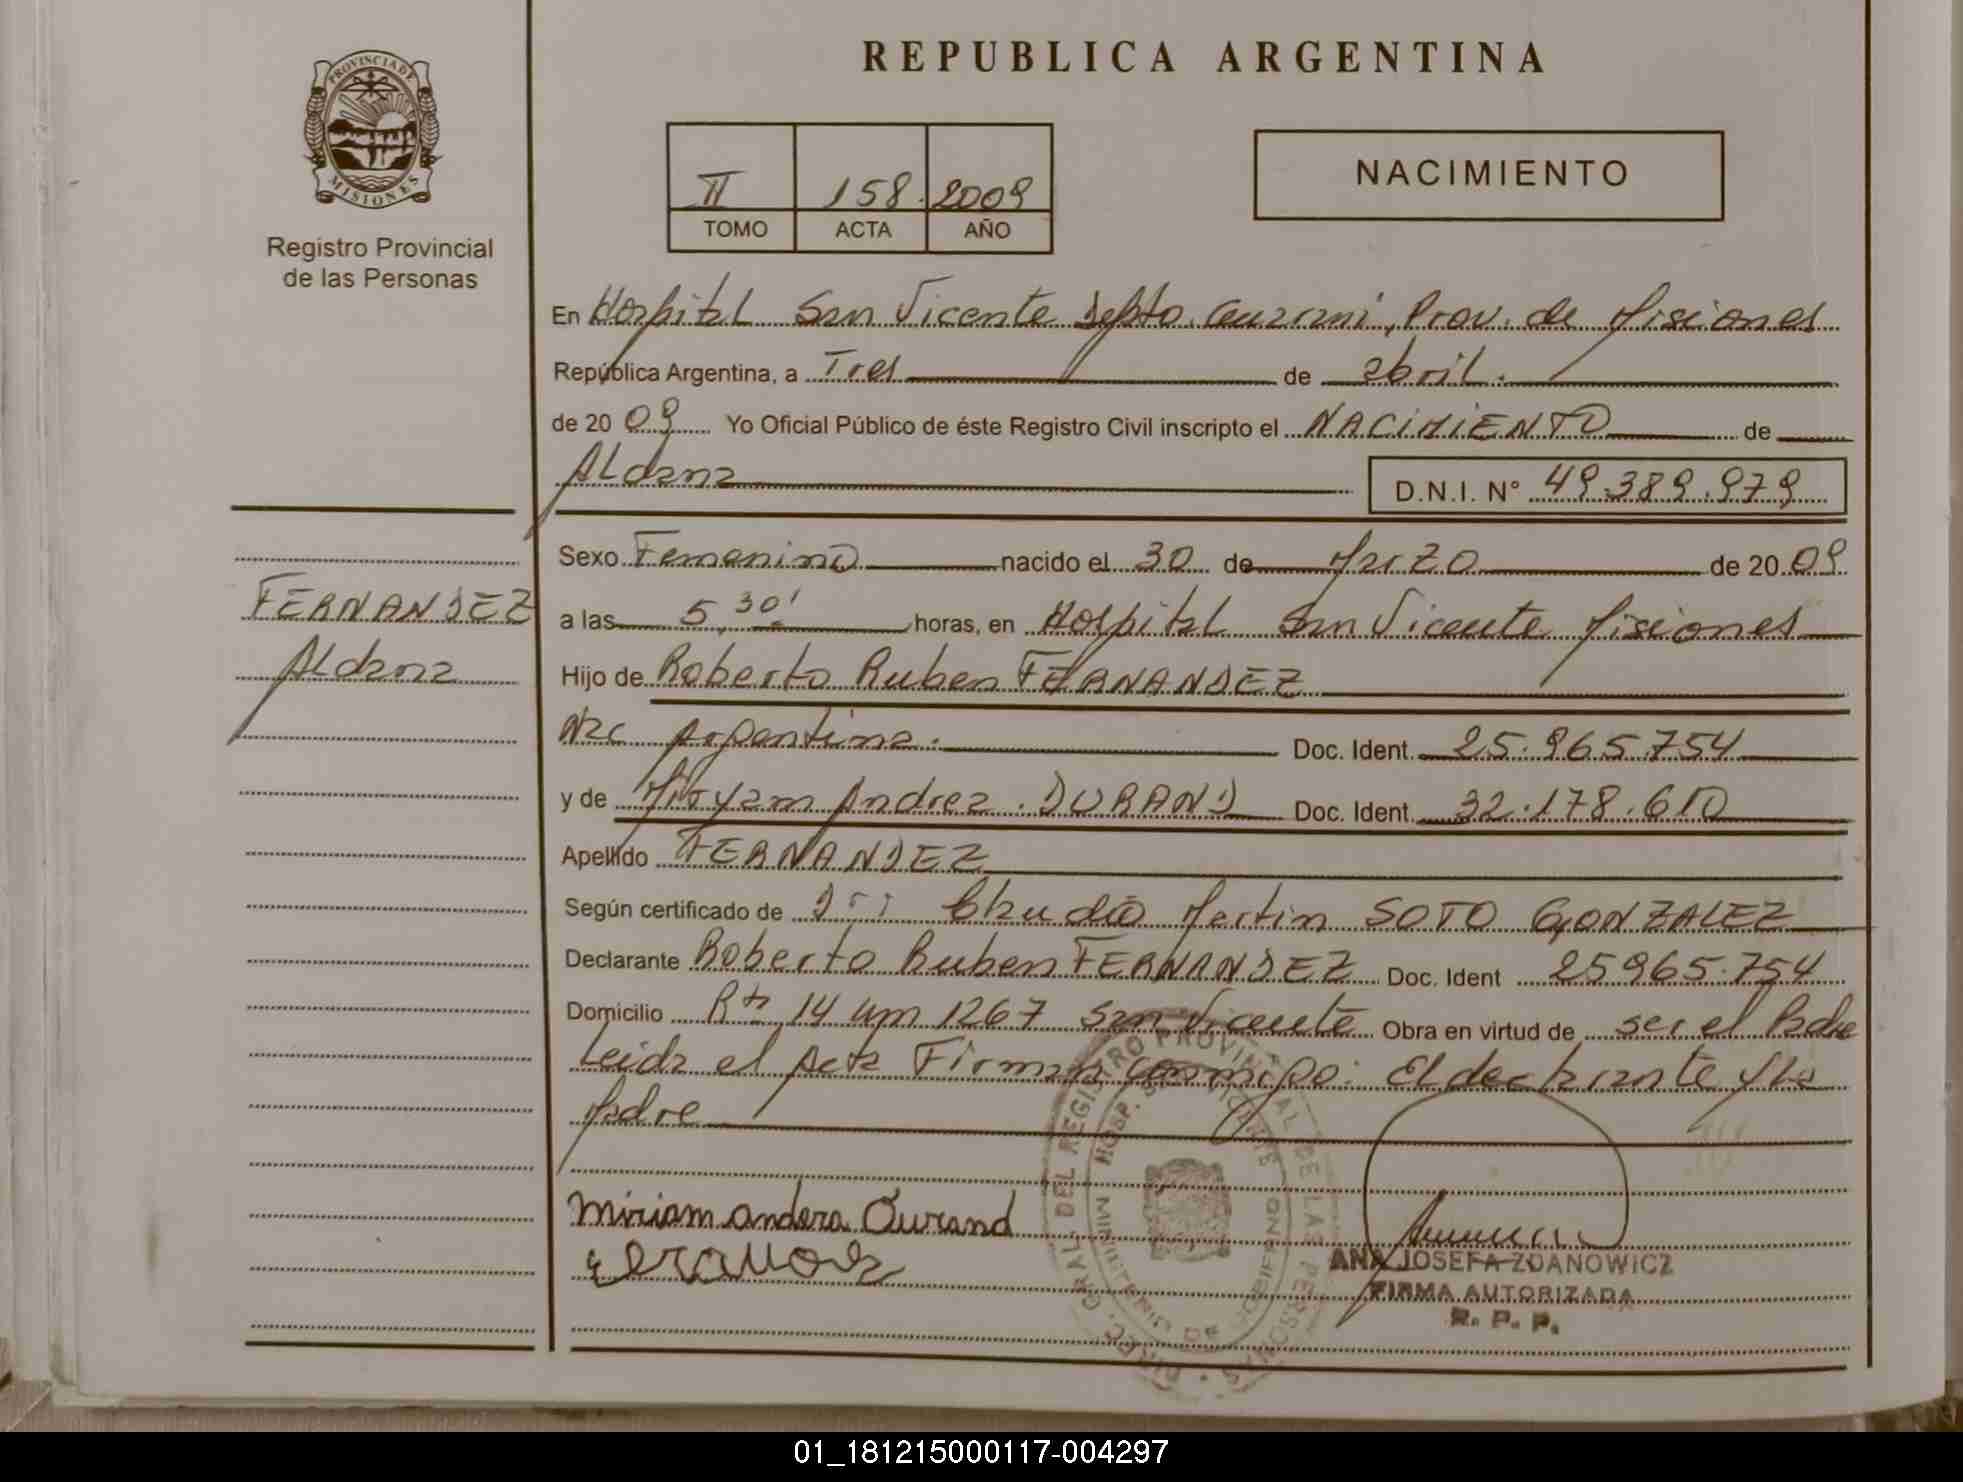 REPUBLICA ARGENTINA
PROVINCIA DE
MISIONES
Registro Provincial
de las Personas
II 158 2009
TOMO ACTA AÑO
NACIMIENTO
En Hospital San Vicente Depto. Guarani, Prov. de Misiones
República Argentina, a Tres de abril.
de 20 09 Yo Oficial Público de éste Registro Civil inscripto el NACIMIENTO de
Aldana
D.N.I. N° 49.389.979
Sexo Femenino nacido el 30 de Marzo de 20 09
FERNANDEZ
Aldana
a las 5,30' horas, en Hospital San Vicente Misiones
Hijo de Roberto Ruben FERNANDEZ
Nac Argentina. Doc. Ident. 25.965.754
y de Miryam Andrea. DURAND Doc. Ident. 32.178.610
Apellido FERNANDEZ
Según certificado de Dr: Claudio Martin SOTO GONZALEZ
Declarante Roberto Ruben FERNANDEZ Doc. Ident 25965.754
Domicilio Rta 14 Km 1267 San Vicente Obra en virtud de ser el Padre
Leida el Acta Firman conmigo: El declarante y la
Madre
DIREC. GRAL. DEL REGISTRO PROVINCIAL DE LAS PERSONAS
HOSP. SAN VICENTE
MINISTERIO DE GOBIERNO
Miriam andera Durand
ANA JOSEFA ZDANOWICZ
FIRMA AUTORIZADA
R. P. P.
01_181215000117-004297